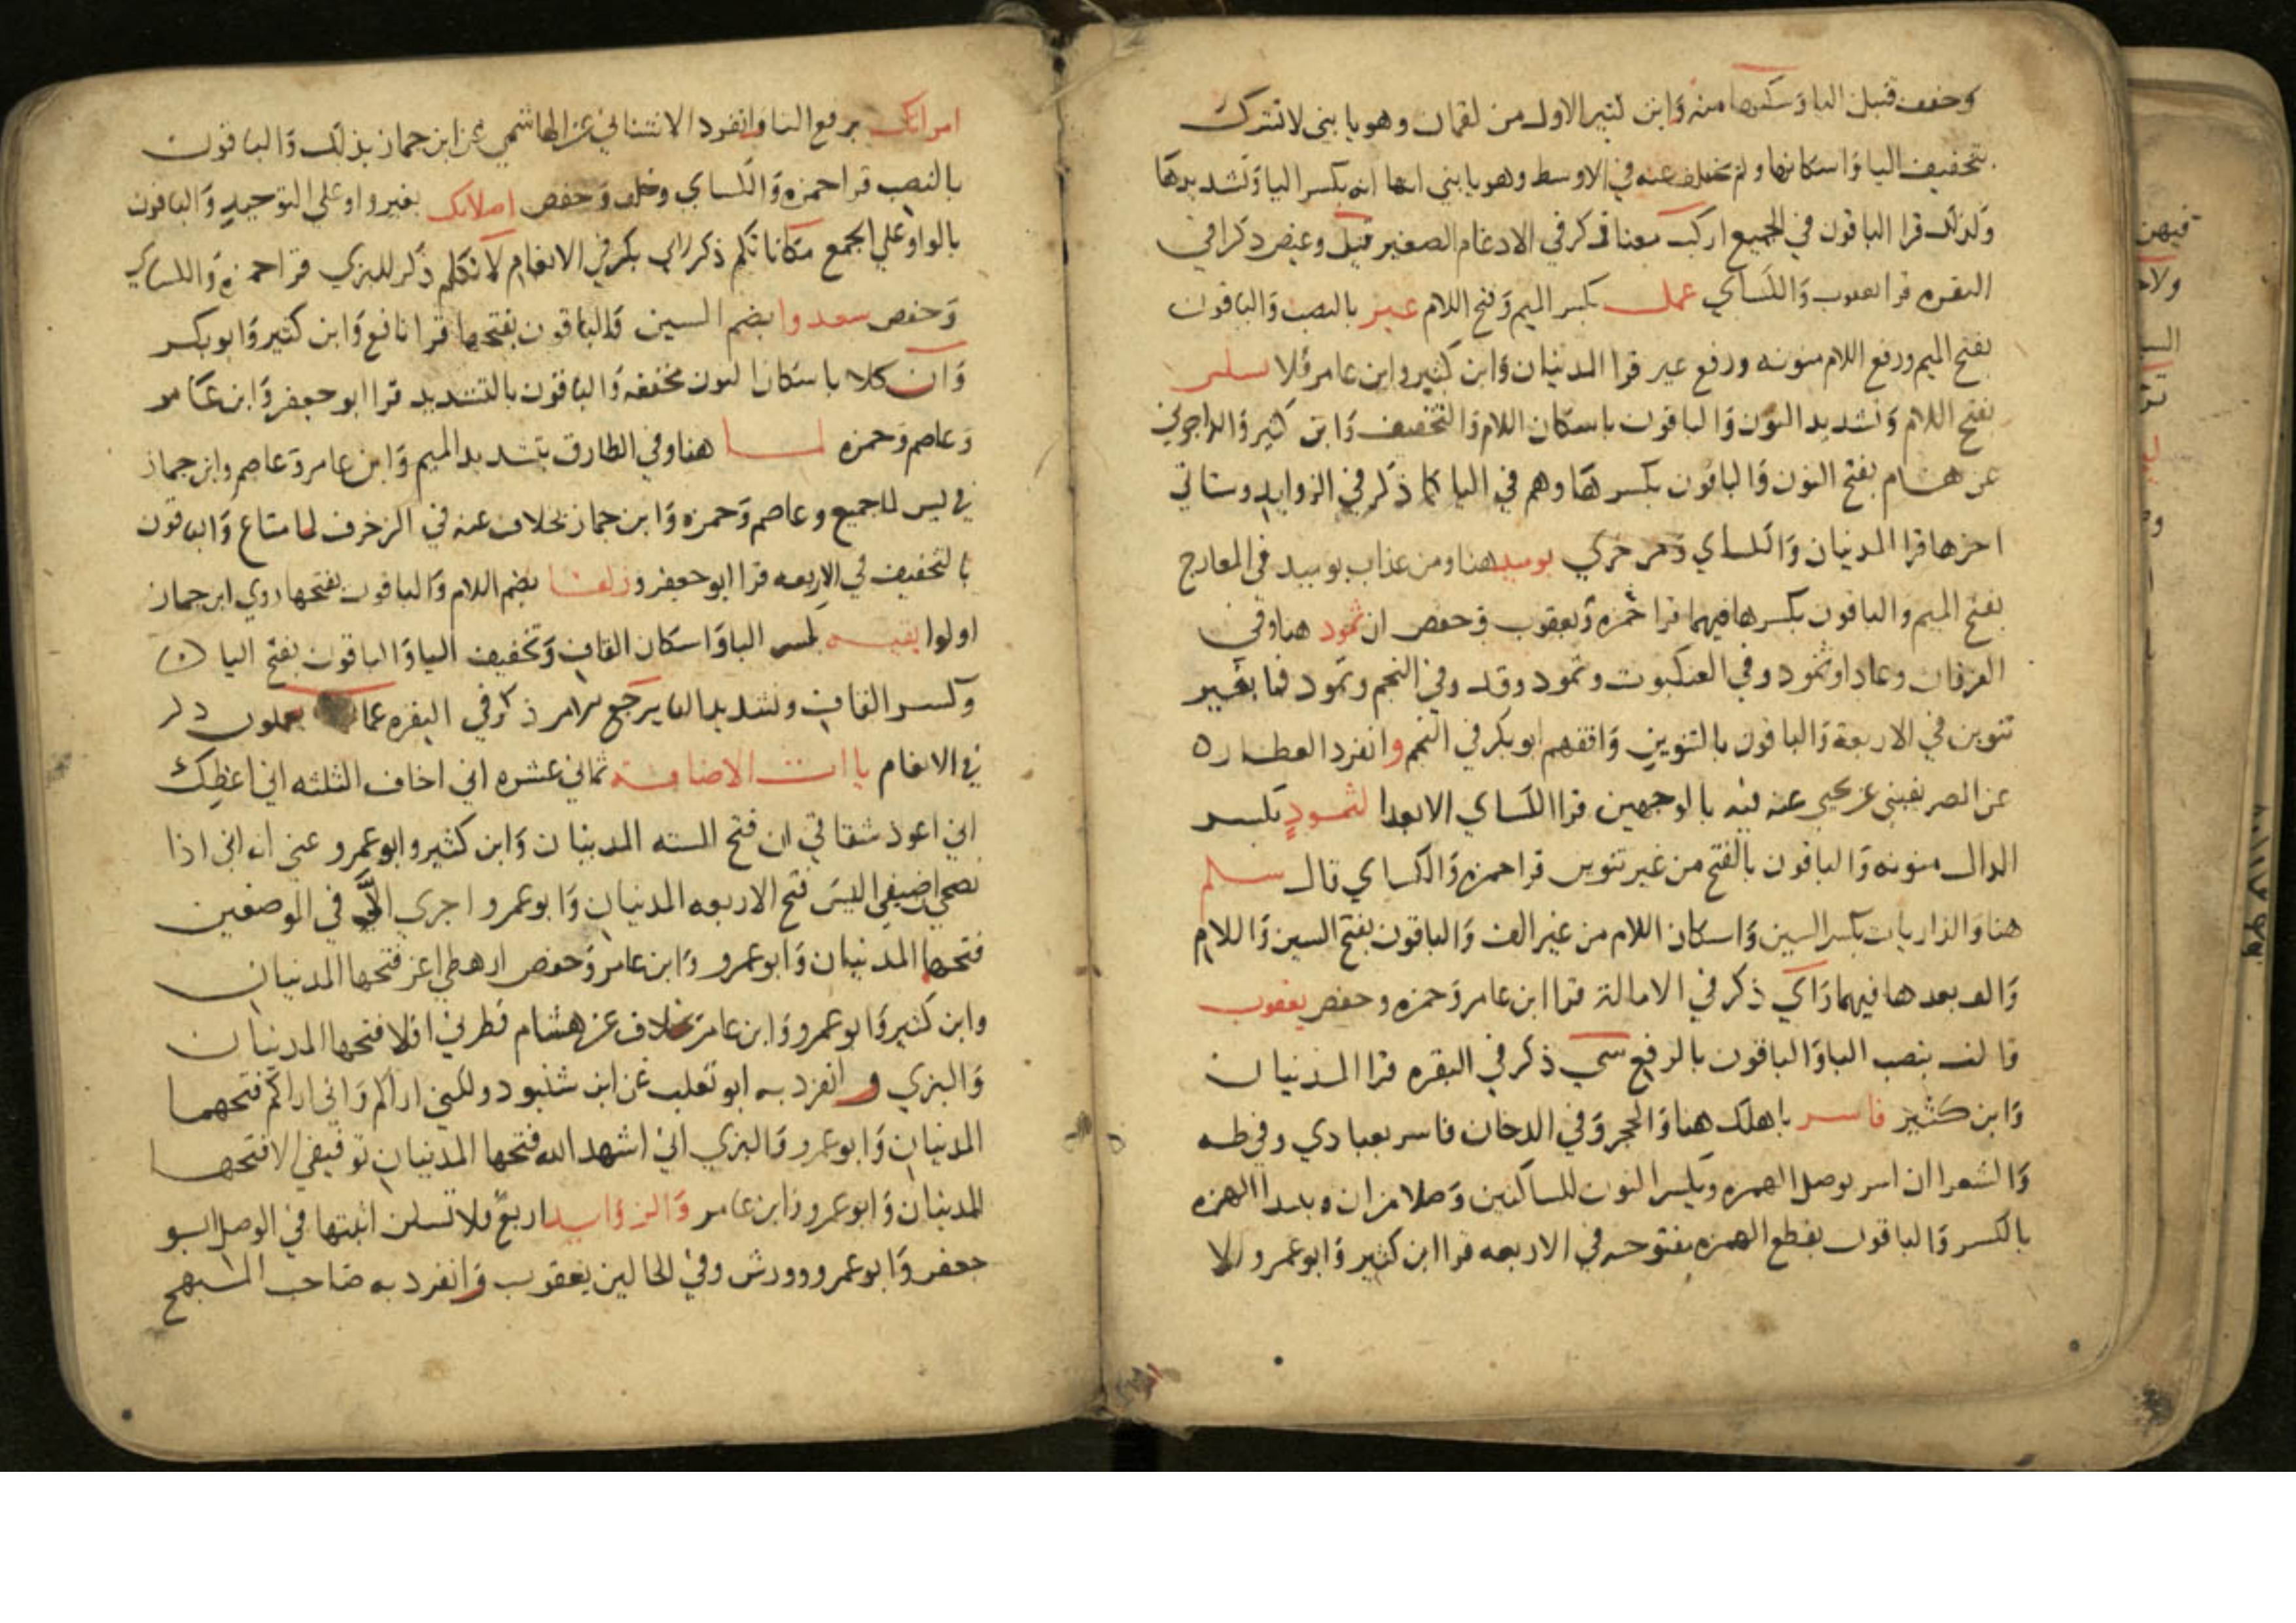 وخفف قنبل اليا وسكنها منه وابن كثير الاول من لقمان وهو يا بني لا تشرك
بتخفيف اليا واسكانها ولم يختلف عنه في الاوسط وهو يا بني انها انه بكسر اليا وتشديدها
وكذلك قرا الباقون في الجميع اركب معنا ذكر في الادغام الصغير قيل وغيض ذكرا في
البقره قرا يعقوب والكساي عمل بكسر الميم وفتح اللام غير بالنصب والباقون
بفتح الميم ورفع اللام منونه ورفع غير قرا المدنيان وابن كثير وابن عامر فلا تسلن
بفتح اللام وتشديد النون والباقون باسكان اللام والتخفيف وابن كثير والداجوني
عن هشام بفتح النون والباقون بكسرها وهم في اليا كما ذكر في الزوايد وستاتي
اخرها قرا المدنيان والكساي ومن خزي يوميد هنا ومن عذاب يوميد في المعارج
بفتح الميم والباقون بكسرها فيهما قرا حمزه ويعقوب وحفص ان ثمود هنا وفي
الفرقان وعادا وثمود وفي العنكبوت وثمود وقد وفي النجم وثمود فما بغير
تنوين في الاربعة والباقون بالتنوين وافقهم ابو بكر في النجم وانفرد العطار
عن الصريفيني عن يحيي عنه فيه بالوجهين قرا الكساي الا بعدا لثمود بكسر
الدال منونه والباقون بالفتح من غير تنوين قرا حمزه والكساي قال سلم
هنا والذاريات بكسر السين واسكان اللام من غير الف والباقون بفتح السين واللام
والف بعدها فيهما وراي ذكر في الامالة قرا ابن عامر وحمزه وحفص يعقوب
قالت بنصب البا والباقون بالرفع سي ذكر في البقره قرا المدنيان
وابن كثير فاسر باهلك هنا والحجر وفي الدخان فاسر بعبادي وفي طه
والشعرا ان اسر بوصل الهمزه وبكسر النون للساكنين وصلا من ان ويبدا الهمزه
بالكسر والباقون بقطع الهمزه مفتوحه في الاربعه قرا ابن كثير وابو عمرو الا
امراتك برفع التا وانفرد الاشناني عن الهاشمي عن ابن جماز بذلك والباقون
بالنصب قرا حمزه والكساي وخلف وحفص اصلاتك بغير واو علي التوحيد والباقون
بالواو علي الجمع مكاناتكم ذكر لابي بكر في الانعام لا تكلم ذكر للبزي قرا حمزه والكساي
وحفص سعدوا بضم السين والباقون بفتحها قرا نافع وابن كثير وابو بكر
وان كلا باسكان النون مخففه والباقون بالتشديد قرا ابو جعفر وابن عامر
وعاصم وحمزه لما هنا وفي الطارق بتشديد الميم وابن عامر وعاصم وابن جماز
في يس لما جميع وعاصم وحمزه وابن جماز بخلاف عنه في الزخرف لما متاع والباقون
بالتخفيف في الاربعه قرا ابو جعفر وزلفا بضم اللام والباقون بفتحها روي ابن جماز
اولوا بقيه بكسر البا واسكان القاف وتخفيف اليا والباقون بفتح البا
وكسر القاف وتشديد اليا يرجع الامر ذكر في البقره عما يعملون ذكر
في الانعام ياات الاضافة ثماني عشره اني اخاف الثلثه اني اعظك
اني اعوذ شقاقي ان فتح السته المدنيان وابن كثير وابو عمرو عني انه اني اذا
نصحي ان ضيفي اليس فتح الاربعه المدنيان وابو عمرو اجري الا في الموضعين
فتحها المدنيان وابو عمرو وابن عامر وحفص ارهطي اعز فتحها المدنيان
وابن كثير وابو عمرو وابن عامر بخلاف عن هشام فطرني افلا فتحها المدنيان
والبزي وانفرد به ابو تغلب عن ابن شنبوذ ولكني اراكم واني اراكم فتحهما
المدنيان وابو عمرو والبزي اني اشهد الله فتحها المدنيان توفيقي الا فتحها
المدنيان وابو عمرو وابن عامر والزوايد اربع فلا تسلن اثبتها في الوصل ابو
جعفر وابو عمرو وورش وفي الحالين يعقوب وانفرد به صاحب المبهج